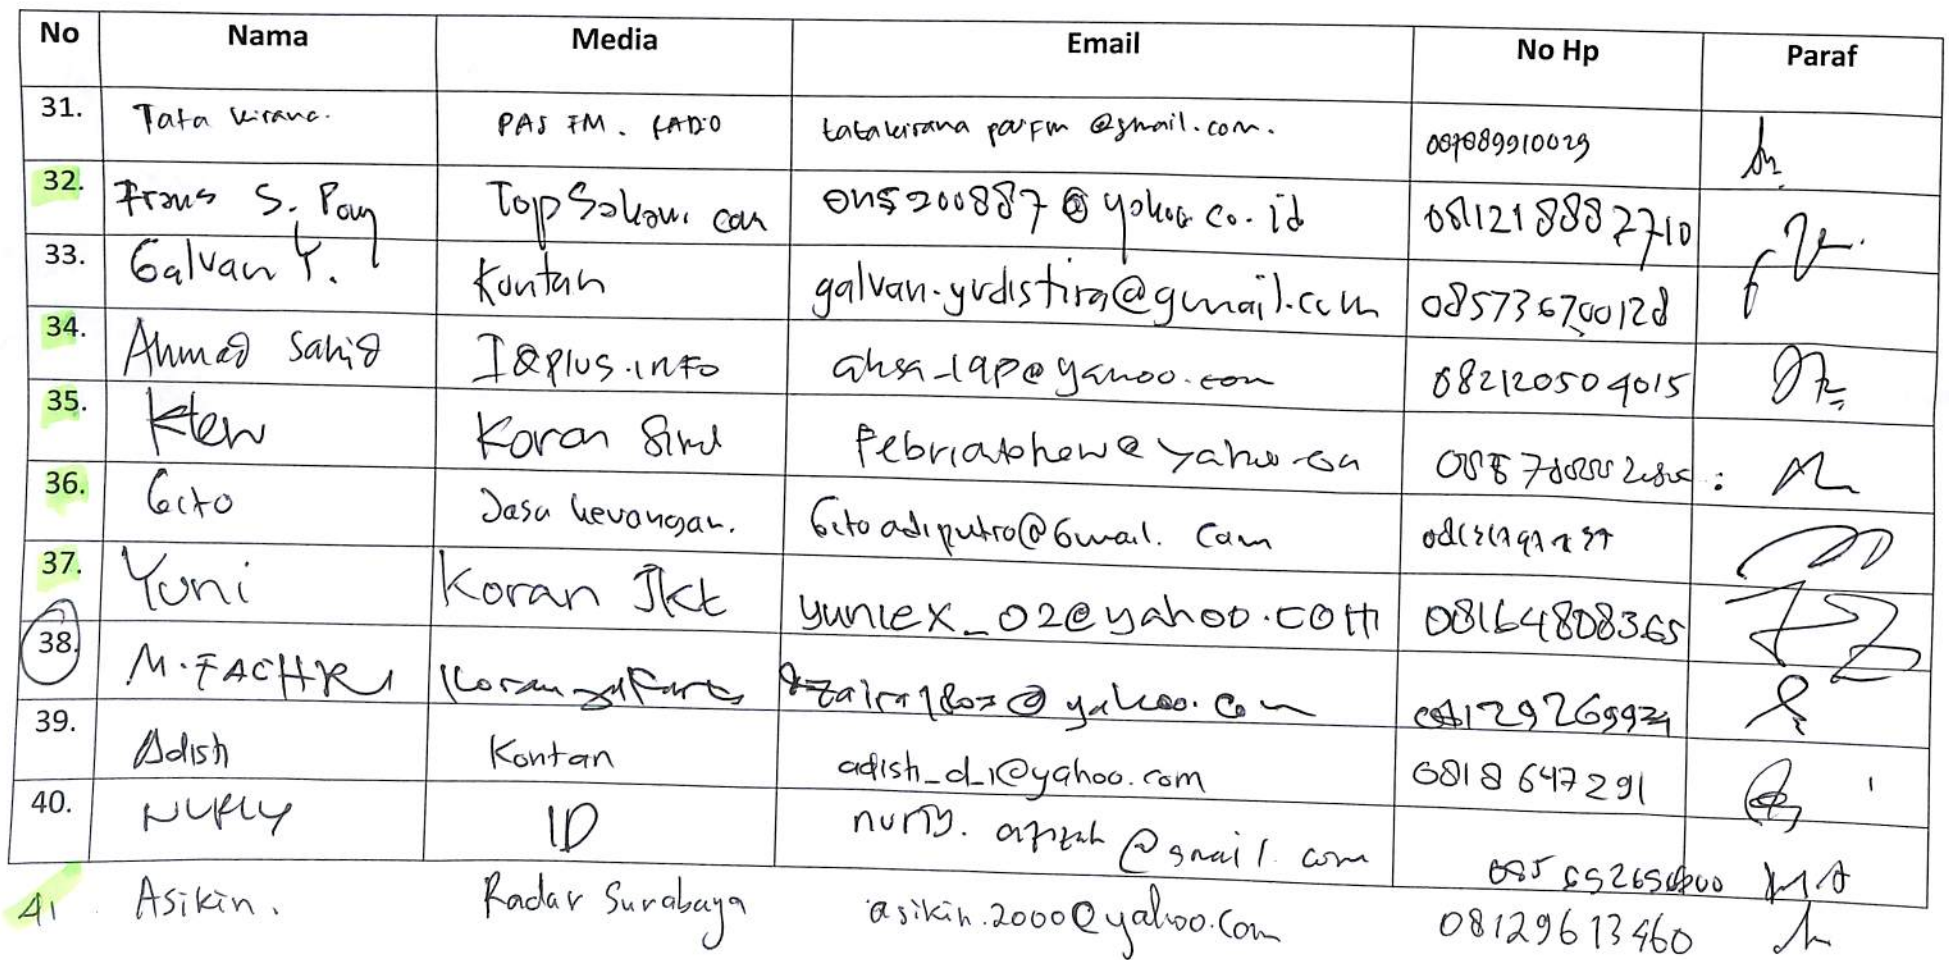 No Nama Media Email No Hp Paraf
31. Tata Kirana. PAS FM. RADIO tatakirana pasFm @gmail.com. 087889910029
32. Frans S. Pay ons200887@yahoo.co.id 081218882710
33. Galvan Y. Kontan galvan.yudistira@gmail.com 085736700128
34. Ahmad Sahid IQPlus.info ahsa_lap@yahoo.com 082120504015
35. Koran Sind
36. Gito Jasa keuangan. Gitoadiputro@Gmail. Com
37. Yuni Koran Jkt yuniex_02@yahoo.com 08164808365
38. M. FACHRI Koran @yahoo.com
39. Adish Kontan adish_d_1@yahoo.com 0818647291
40. NURLY ID @gmail. com
41 Asikin. Radar Surabaya asikin.2000@yahoo.Com 08129613460